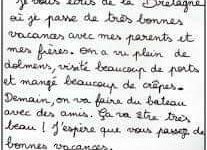 Je vous écris de la Bretagne
où je passe de très bonnes
vacances avec mes parents et
mes frères. On a vu plein de
dolmens, visité beaucoup de ports
et mangé beaucoup de crêpes.
Demain, on va faire du bateau
avec des amis. Ça va être très
beau ! J'espère que vous passez de
bonnes vacances.